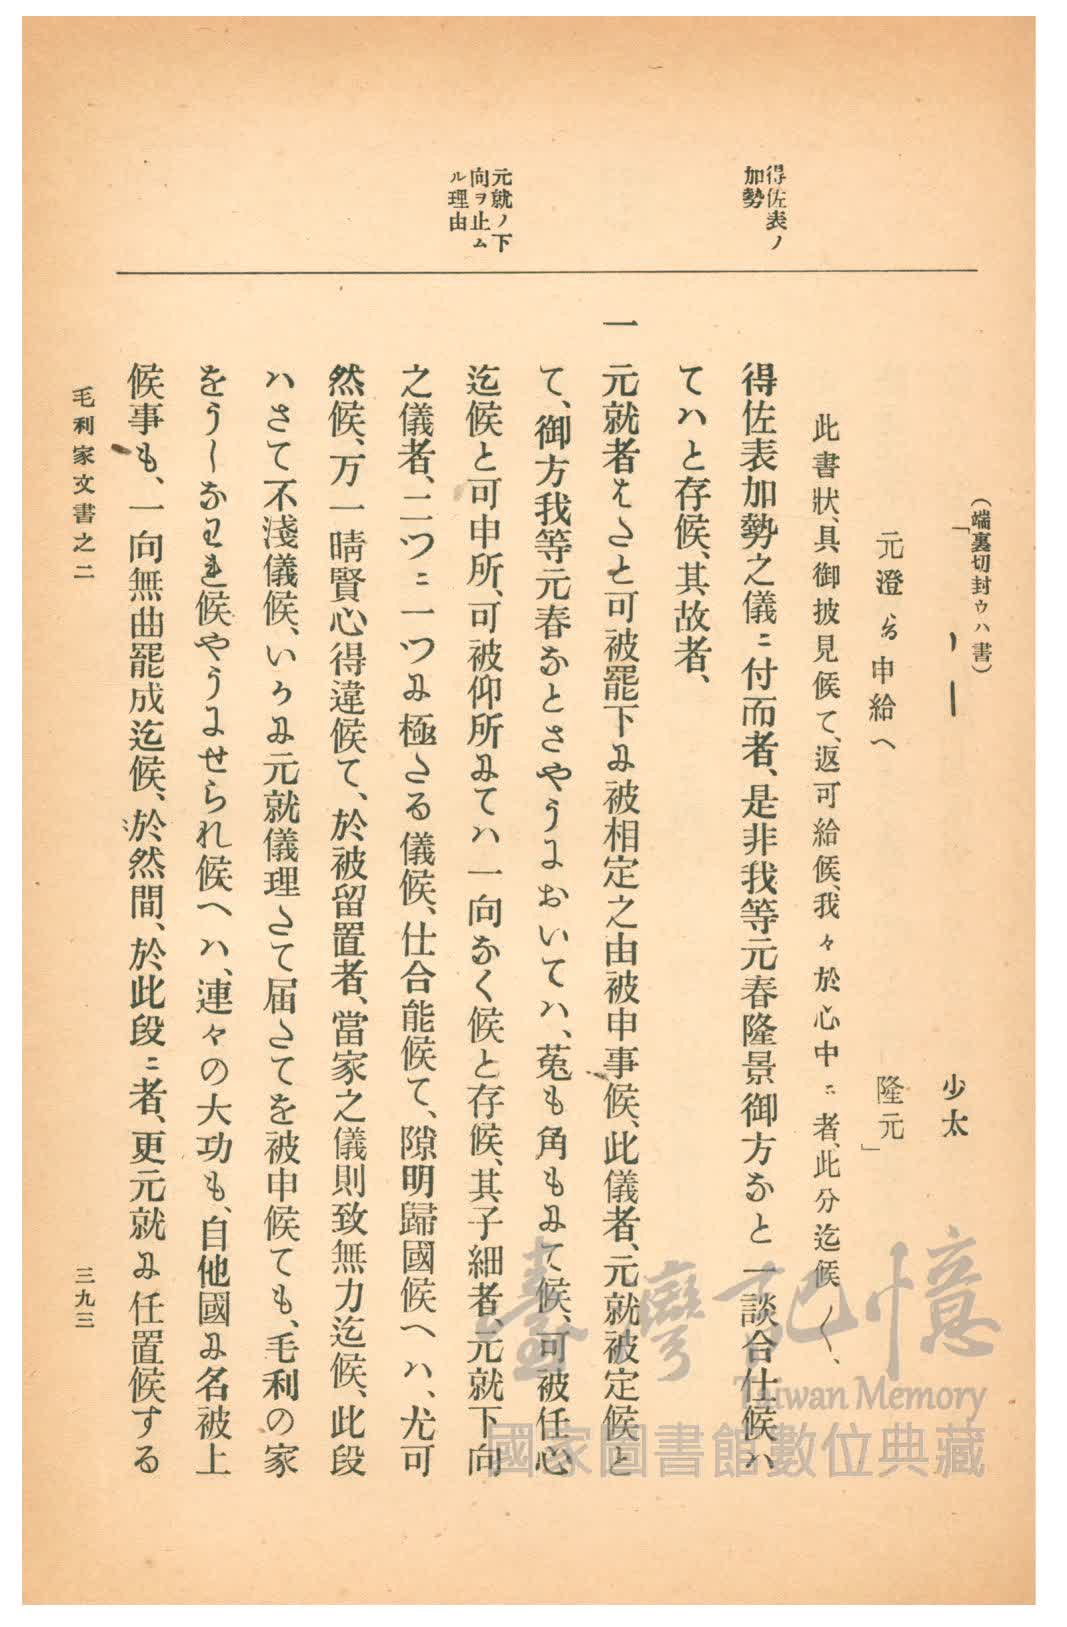 得佐表ノ
加勢
元就ノ下
向ヲ止ム
ル理由
(端裏切封ウハ書)
「 少太
元澄ゟ申給へ 隆元」
此書狀、具御披見候て、返可給候、我々於心中ニ者、此分迄候〳〵、
得佐表加勢之儀ニ付而者、是非我等元春隆景御方なと一談合仕候ハ
てハと存候、其故者、
一元就者はたと可被罷下に被相定之由被申事候、此儀者、元就被定候と
て、御方我等元春なとさやうにおいてハ、菟も角もにて候、可被任心
迄候と可申所、可被仰所にてハ一向なく候と存候、其子細者、元就下向
之儀者、二つニ一つに極たる儀候、仕合能候て、隙明歸國候へハ、尤可
然候、万一晴賢心得違候て、於被留置者、當家之儀則致無力迄候、此段
ハさて不淺儀候、いかに元就儀理たて届たてを被申候ても、毛利の家
をうしなわれ候やうにせられ候へハ、連々の大功も、自他國に名被上
候事も、一向無曲罷成迄候、於然間、於此段ニ者、更元就に任置候する
毛利家文書之二
三九三
臺灣記憶
Taiwan Memory
國家圖書館數位典藏